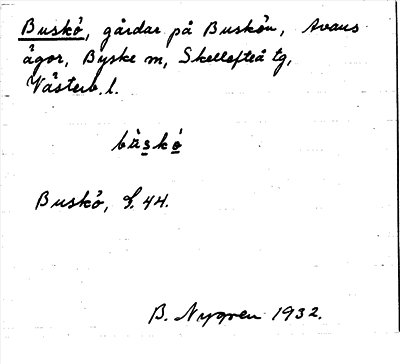 Buskö, gårdar på Buskön, Avans
ägor, Byske m, Skellefteå tg,
Västerb. l.
bùskó
Buskö, S. 44.
B. Nygren 1932.